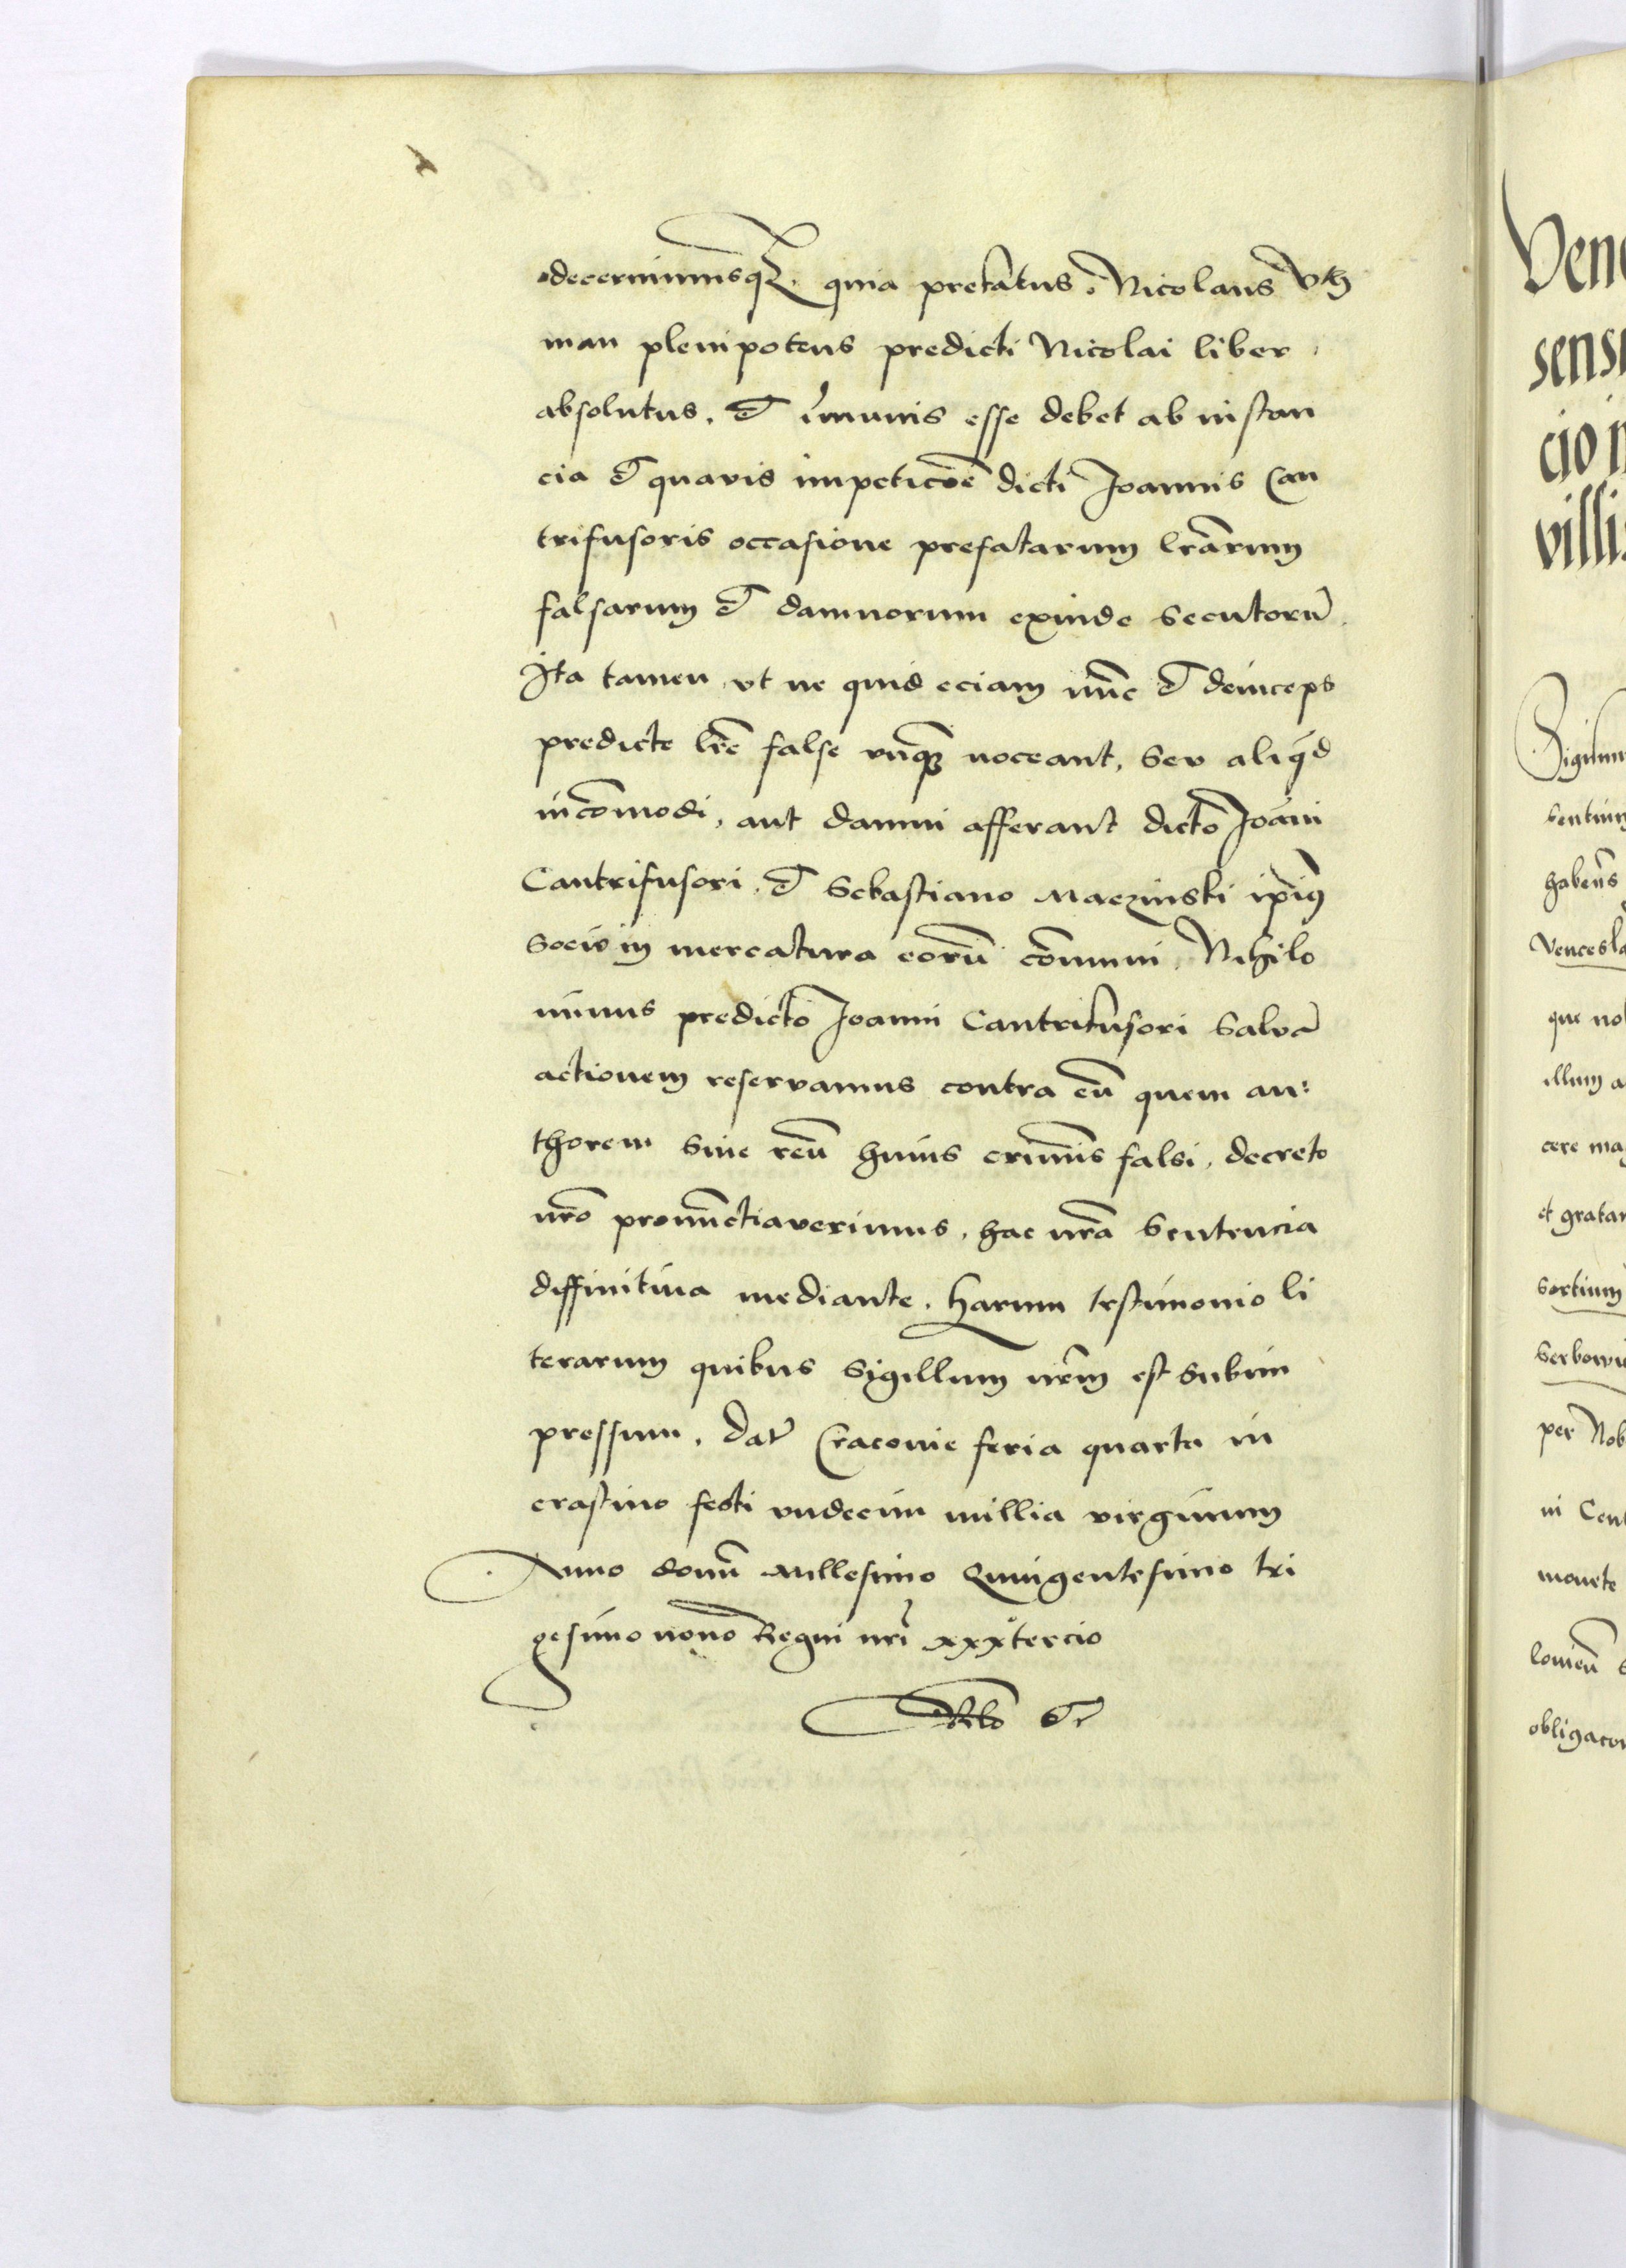 decernimusq₃. quia prefatus. Nicolaus Vth
man plenipotens predicti Nicolai liber
absolutus. et im̄unis esse debet ab instan
cia et quavis impeticōe dicti Joannis Can
trifusoris occasione prefatarum lr̄arum
falsarum et damnorum exinde secutorū
Ita tamen vt ne quid eciam nūc et deinceps
predicte lr̄e false vnq̄ noceant, seu aliqd
incōmodi, aut damni afferant dicto Joāni
Cantrifusori. et Sebastiano Maczinski ip̄iꝰ
socio in mercatura eorū cōmuni. Nihilo
minus predicto Joanni Cantrifusori salvā
actionem reservamus contra eū quem au:
thorem siue reū huius criminis falsi, decreto
nr̄o pronūctiaverimus, hac nr̄a sentencia
diffinitiua mediante. Harum testimonio li
terarum quibus sigillum nr̄m est subim
pressum. Dat̄ Cracouie feria quarta in
crastino festi vndecim millia virginum
Anno domī Millesimo Quingentesimo tri
gesimo nono Regni nr̄i xxxtercio
Vene
sensu
cio
villi
Sigismu
sentium
habens
Vencesla
que no
illum a
cere ma
et gratam
sortium
serbowi
per Nob
in Cent
monete
obligacon